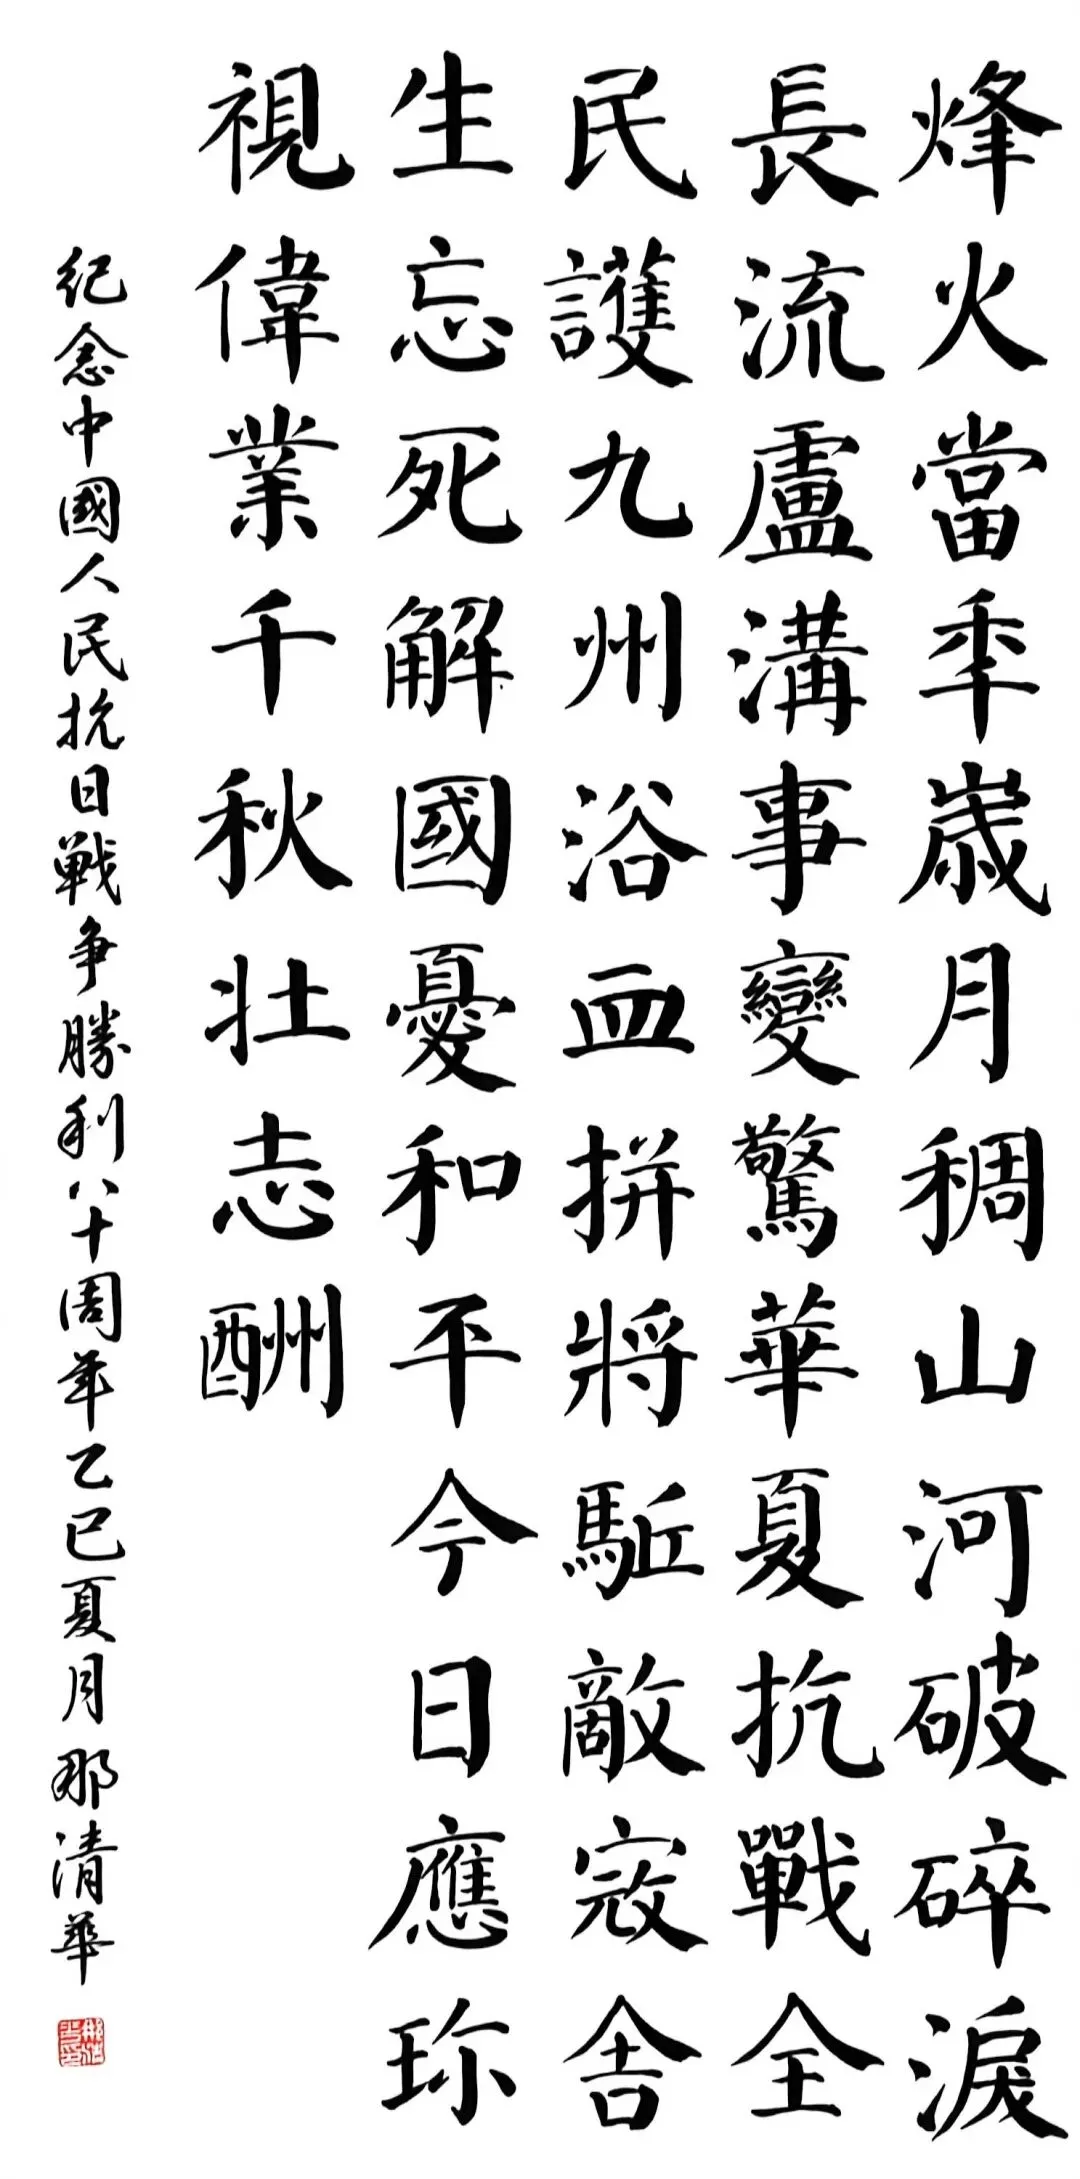 烽火當年歲月稠山河破碎淚
長流盧溝事變驚華夏抗戰全
民護九州浴血拼將駈敵寇舍
生忘死解國憂和平今日應珎
視偉業千秋壮志酬
纪念中國人民抗日戰争勝利八十周年乙巳夏月那清華